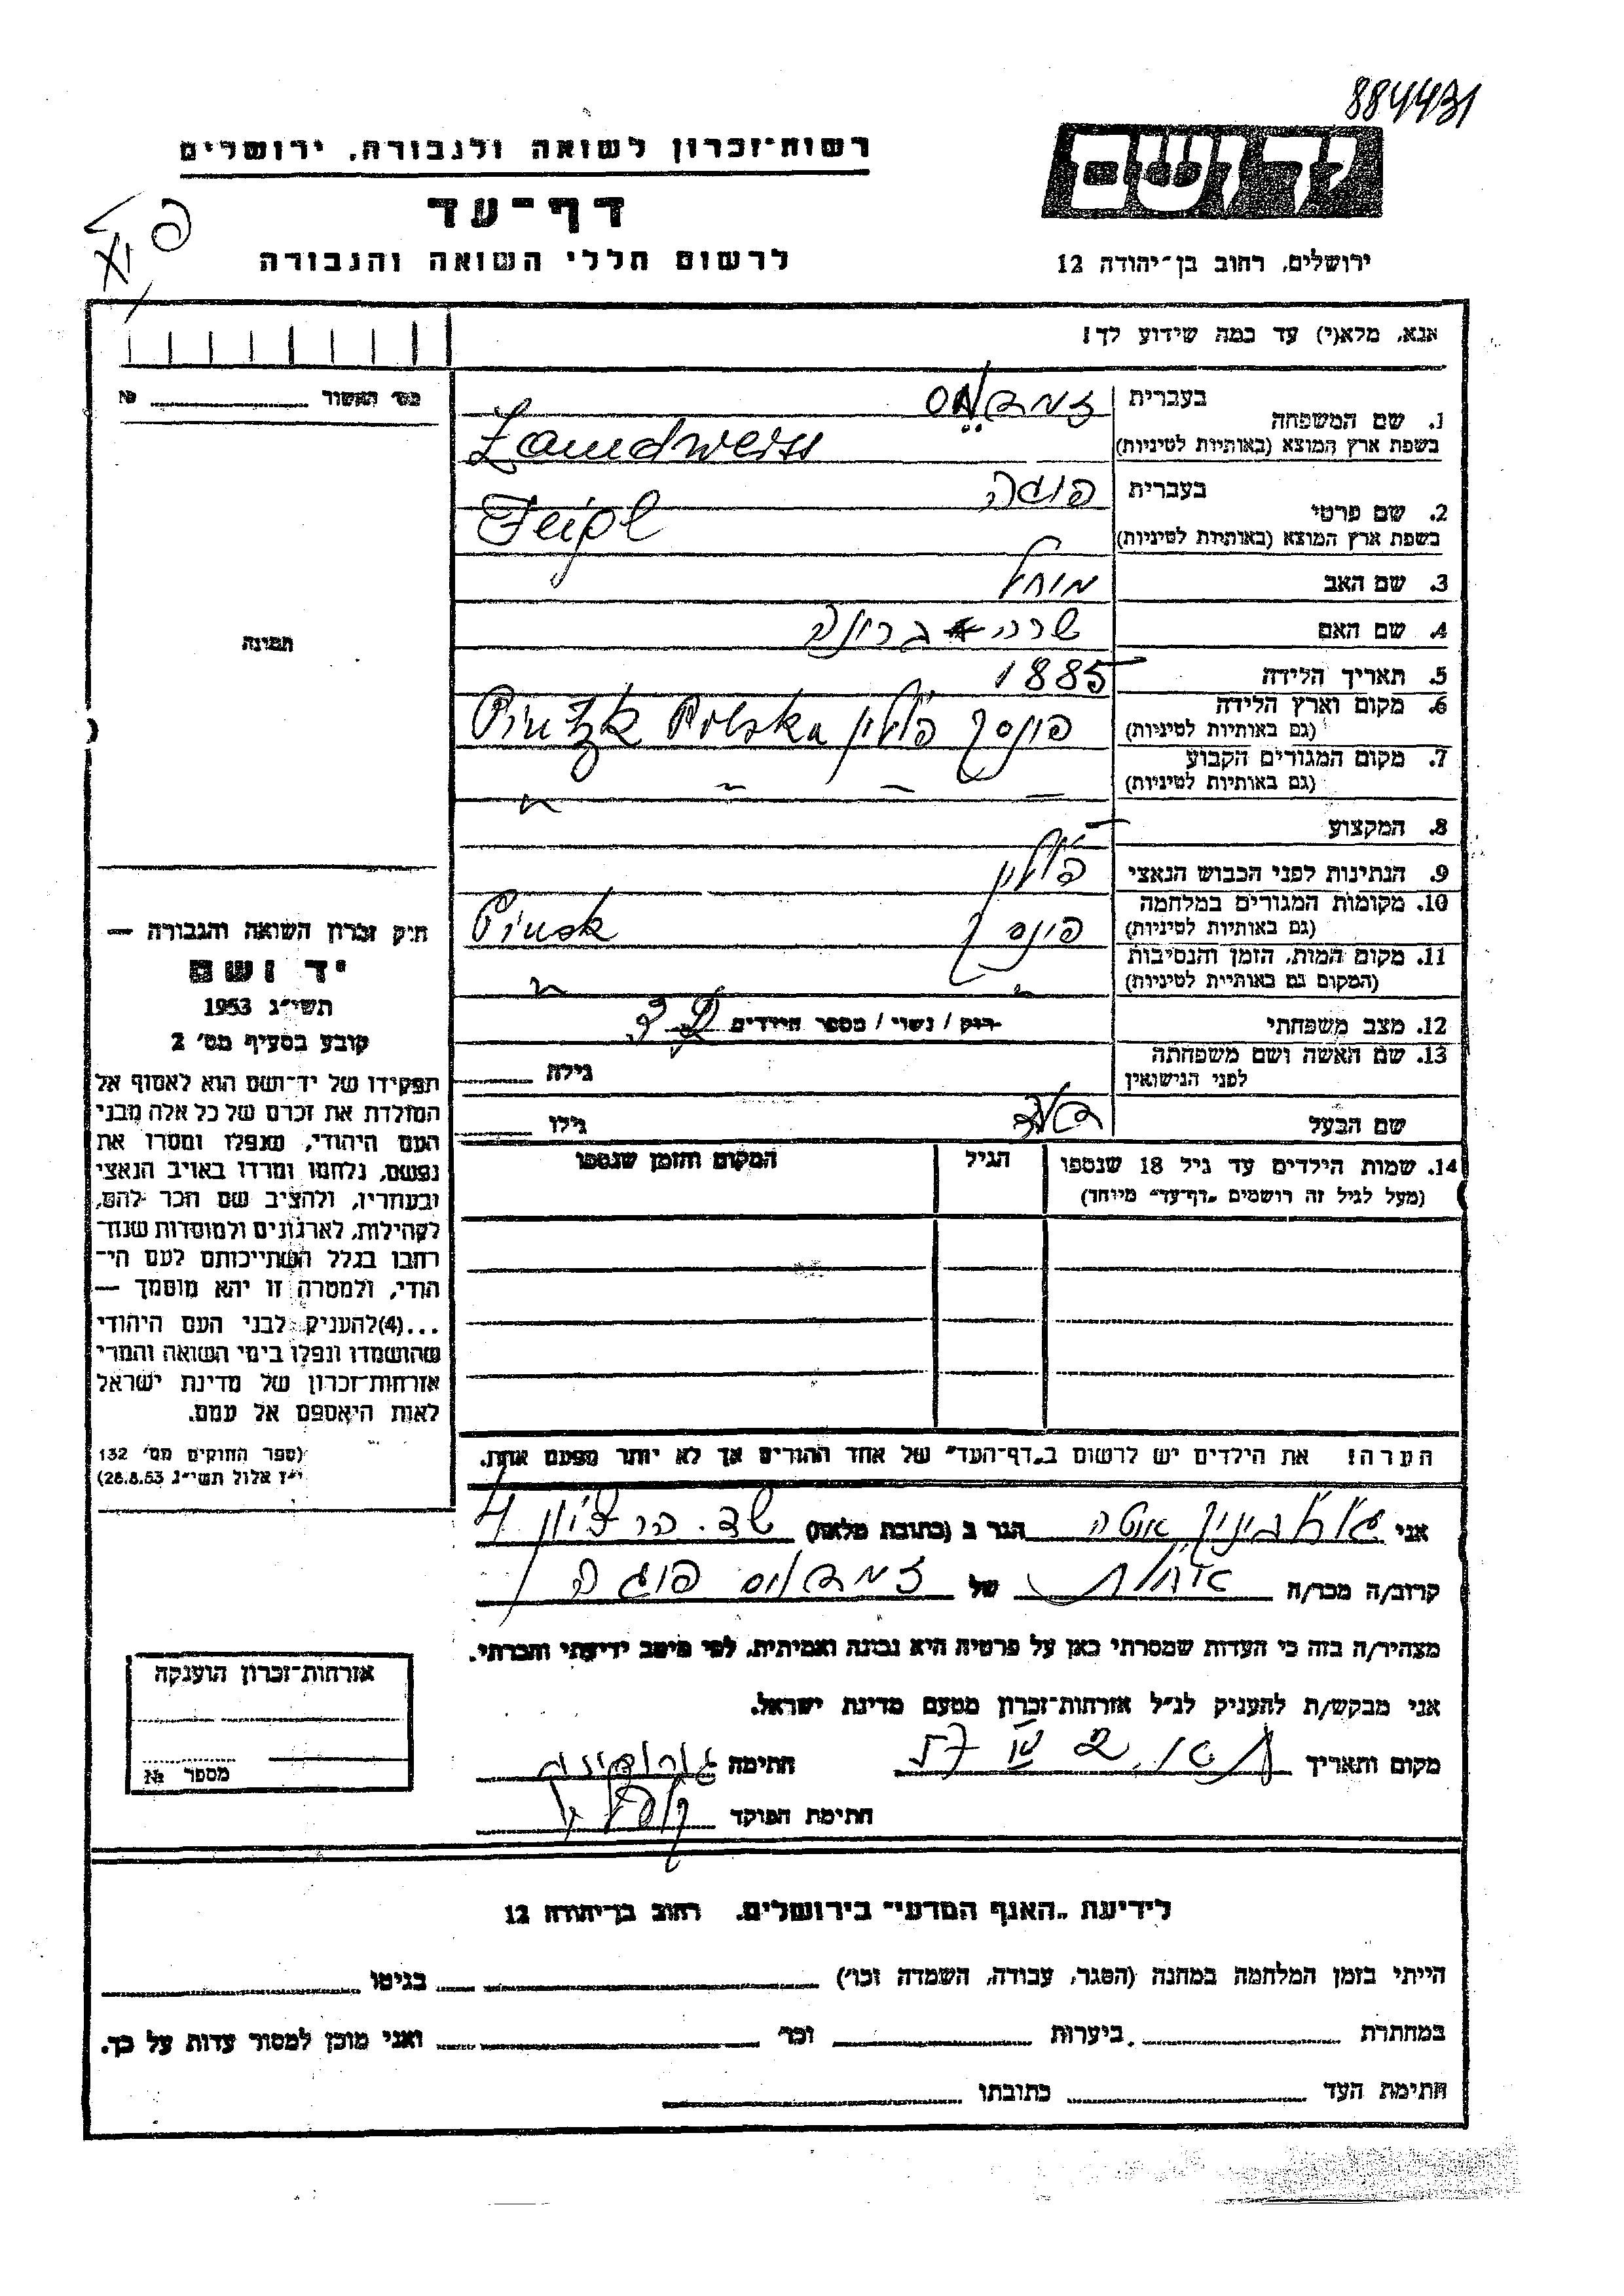 884431
רשות-זכרון לשואה ולגבורה, ירושלים
יד ושם
דף-עד
לרשום חללי השואה והגבורה
ירושלים, רחוב בן-יהודה 12
אנא, מלא(י) עד כמה שידוע לך!
מס׳ האשור №
1. שם המשפחה
בעברית
בשפת ארץ המוצא (באותיות לטיניות) Zamdweiss
2. שם פרטי
בעברית פוגה
בשפת ארץ המוצא (באותיות לטיניות) Fejgl
3. שם האב
4. שם האם שרה
5. תאריך הלידה 1885
6. מקום וארץ הלידה פינסק פולין Pinzk Polska
(גם באותיות לטיניות)
7. מקום המגורים הקבוע
(גם באותיות לטיניות)
8. המקצוע –
9. הנתינות לפני הכבוש הנאצי פולין
10. מקומות המגורים במלחמה פינסק Pinsk
(גם באותיות לטיניות)
11. מקום המות, הזמן והנסיבות
(המקום גם באותיות לטיניות)
12. מצב משפחתי רוק / נשוי / מספר הילדים
13. שם האשה ושם משפחתה
לפני הנישואין
גילה
שם הבעל
גילו
14. שמות הילדים עד גיל 18 שנספו
(מעל לגיל זה רושמים „דף-עד" מיוחד)
הגיל
המקום והזמן שנספו
הערה! את הילדים יש לרשום ב„דף-העד" של אחד ההורים אך לא יותר מפעם אחת.
תמונה
חוק זכרון השואה והגבורה —
יד ושם
תשי״ג 1953
קובע בסעיף מס׳ 2
תפקידו של יד-ושם הוא לאסוף אל
המולדת את זכרם של כל אלה מבני
העם היהודי, שנפלו ומסרו את
נפשם, נלחמו ומרדו באויב הנאצי
ובעוזריו, ולהציב שם וזכר להם,
לקהילות, לארגונים ולמוסדות שנח-
רבו בגלל השתייכותם לעם הי-
הודי, ולמטרה זו יהא מוסמך —
...(4)להעניק לבני העם היהודי
שהושמדו ונפלו בימי השואה והמרי
אזרחות-זכרון של מדינת ישראל
לאות היאספם אל עמם.
(ספר החוקים מס׳ 132
י״ז אלול תשי״ג 28.8.53)
אני הגר ב (כתובת מלאה) שד. הר ציון 4
קרוב/ה מכר/ה של פוגה
מצהיר/ה בזה כי העדות שמסרתי כאן על פרטיה היא נכונה ואמיתית, לפי מיטב ידיעתי והכרתי.
אני מבקש/ת להעניק לנ״ל אזרחות-זכרון מטעם מדינת ישראל.
מקום ותאריך חתימה
חתימת הפוקד
אזרחות-זכרון הוענקה
מספר №
לידיעת „האגף המדעי" בירושלים. רחוב בן-יהודה 12
הייתי בזמן המלחמה במחנה (הסגר, עבודה, השמדה וכו׳) בגיטו
במחתרת ביערות וכו׳ ואני מוכן למסור עדות על כך.
חתימת העד כתובתו